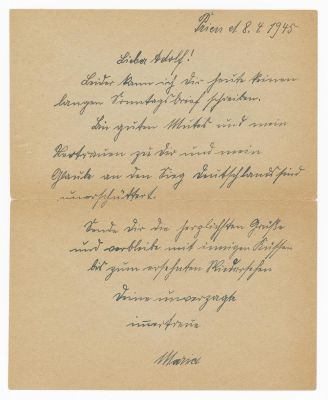 Prien d. 8.4.1945
Lieber Adolf!
Leider kann ich dir heute keinen
langen Sonntagsbrief schreiben.
Bin guten Mutes und mein
Vertrauen zu dir und mein
Glaube an den Sieg Deutschlands sind
unerschüttert.
Sende dir die herzlichsten Grüße
und verbleibe mit innigen Küssen
bis zum ersehnten Wiedersehen
Deine unverzagte
immertreue
Maria